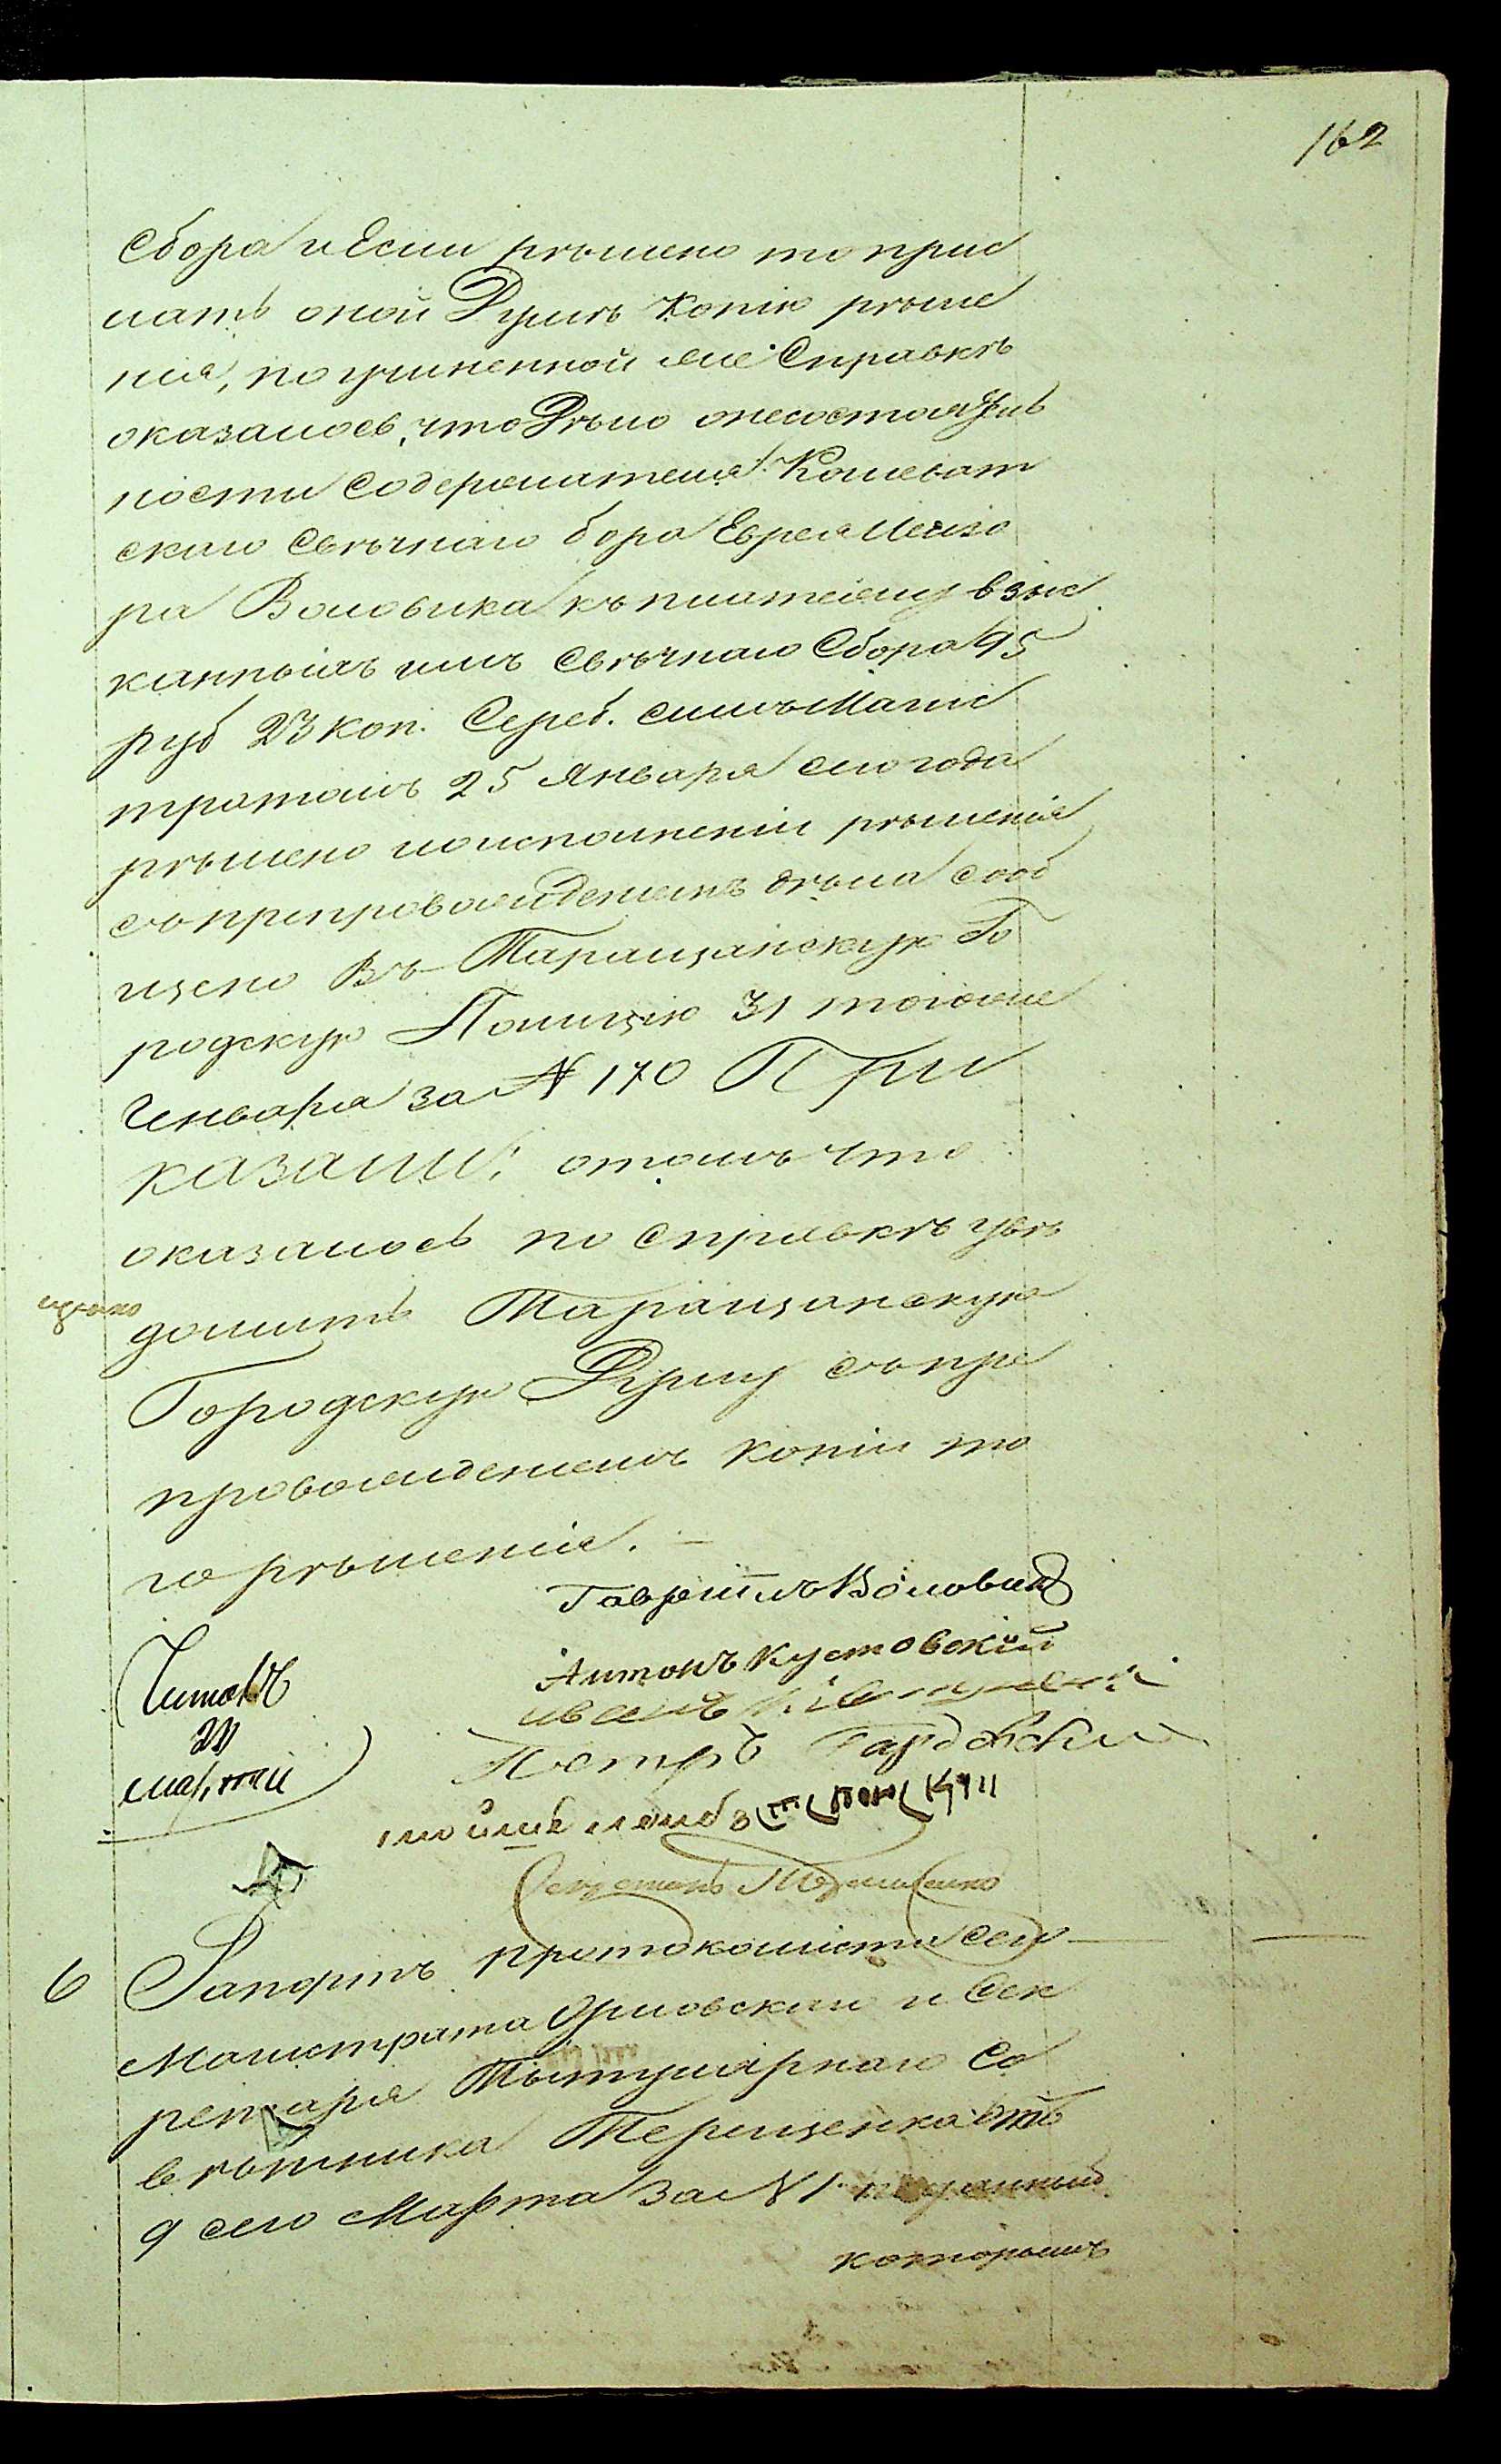 162
сбора и Если рѣшено то прис
лать оной Думѣ Копію рѣше
нія, по учиненной же Справкѣ
оказалось, что Дѣло онесостоятель
ности содержателя Кошеват
скаго Свѣчнаго бора Еврея Лейзо
ра Воловика къ платежу взыс
каннымъ имъ Свѣчнаго Сбора 95
руб 23 коп. Сереб. симъ Магис
тратомъ 25 Января сего года
рѣшено и о исполненіи рѣшенія
съ препровожденіемъ дѣла сооб
щено Въ Таращанскую Го
родскую Полицію 31 того же
Генваря за № 170 При
казали: отомъ что
оказалось по справкѣ увѣ
домить Таращанскую
Городскую Думу съ пре
провожденіемъ копіи то
го рѣшенія. —
Гавріилъ Воловикъ
Антонъ Кустовскій
Иванъ
Петръ
Читалъ
Секретарь Терещенко
6 Рапортъ протоколиста сего
Магистрата Орловскаго и Сек
ретаря Тытулярнаго Со
вѣтника Терещенка отъ
9 сего Марта за № 1
которымъ